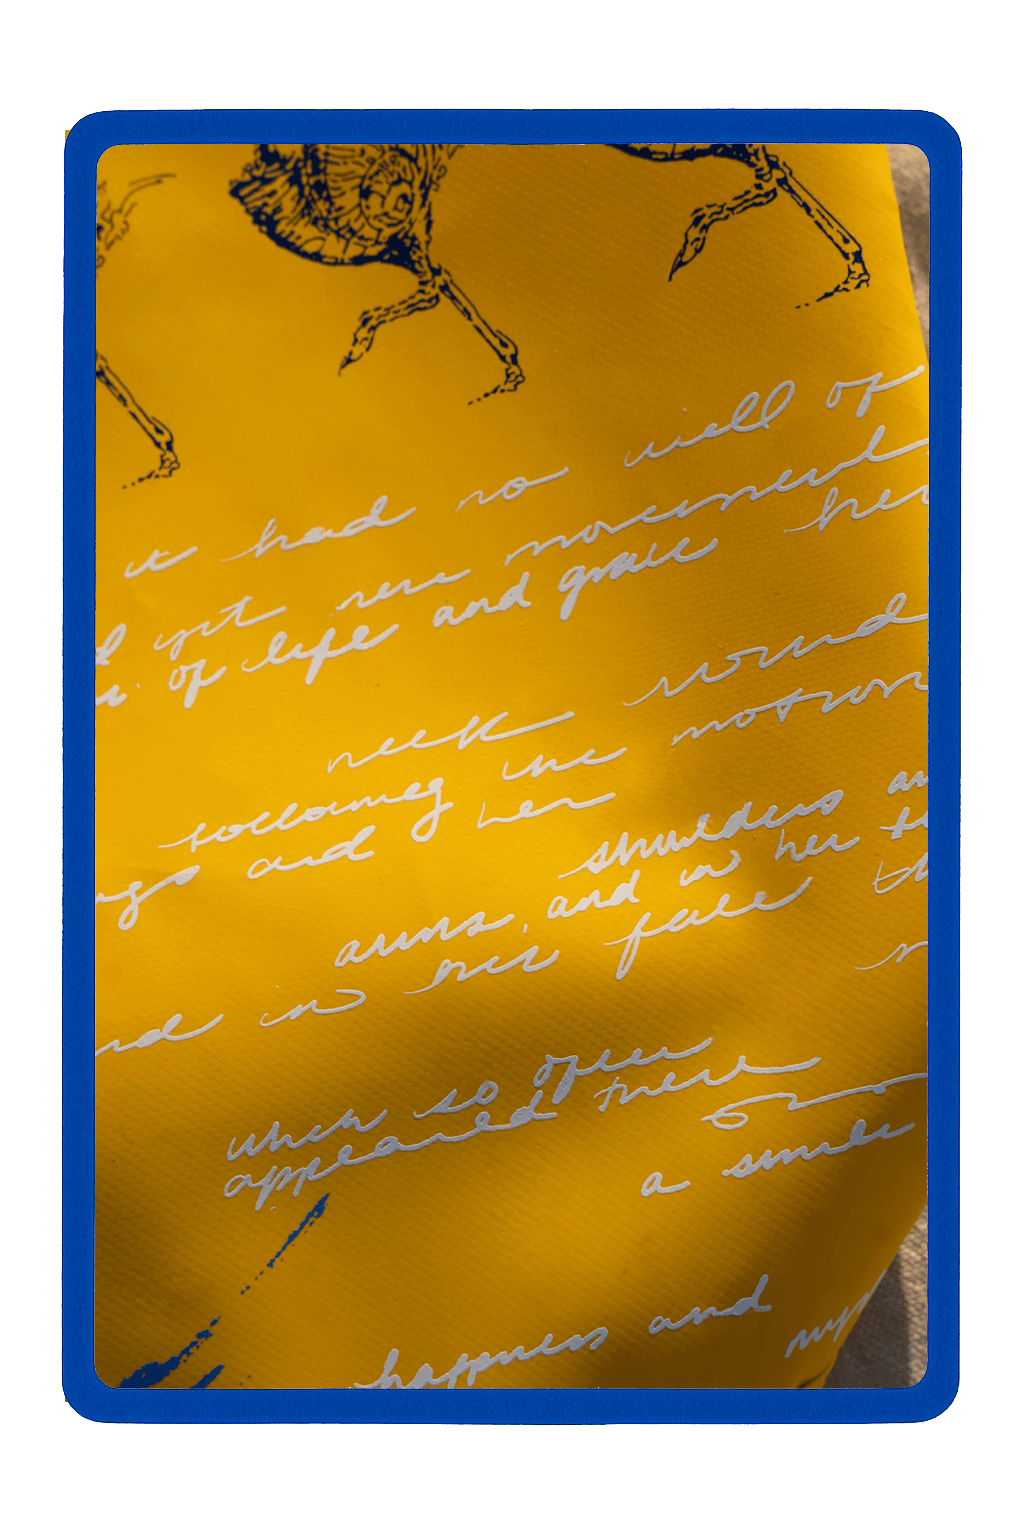 it had no well of
yet movement
of life and grace her
neck round
following the motion
and her
shoulders
arms, and in her
in her face
when so often
appeared there
a smile
happiness and